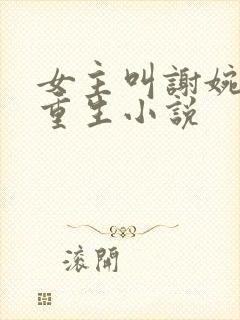 女主叫謝婉
重生小説
滾開